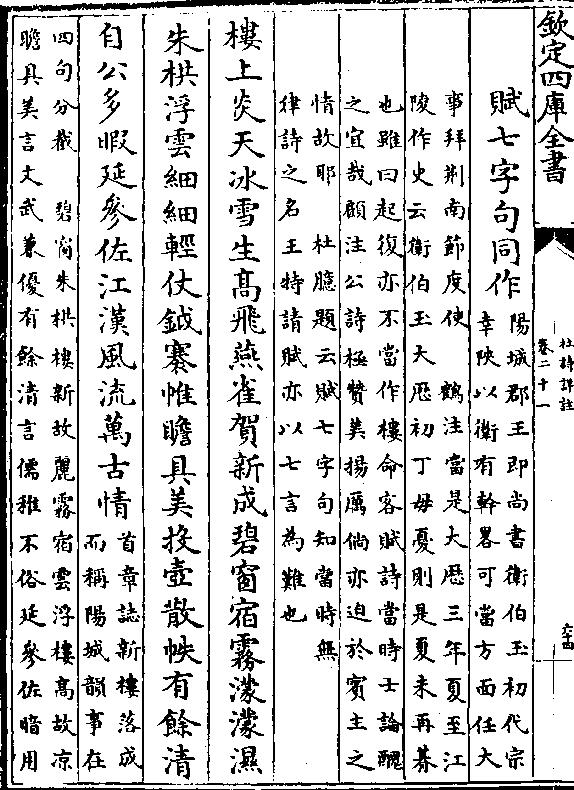 欽定四庫全書
杜詩詳註
卷二十一
六十四
賦七字句同作
陽城郡王即尚書衛伯玉初代宗
幸陜以衛有幹畧可當方面任大
事拜荆南節度使 鶴注當是大厯三年夏至江
陵作史云衛伯玉大厯初丁母憂則是夏未再朞
也雖曰起復亦不當作樓命客賦詩當時士論醜
之宜哉顧注公詩極贊美揚厲倘亦迫於賓主之
情故耶 杜臆題云賦七字句知當時無
律詩之名王特請賦亦以七言為難也
樓上炎天冰雪生高飛燕雀賀新成碧窗宿霧濛濛濕
朱栱浮雲細細輕仗鉞褰帷瞻具美投壺散帙有餘清
自公多暇延參佐江漢風流萬古情
首章誌新樓落成
而稱陽城韻事在
四句分截 碧窗朱栱樓新故麗霧宿雲浮樓高故凉
瞻具美言文武兼優有餘清言儒雅不俗延參佐暗用